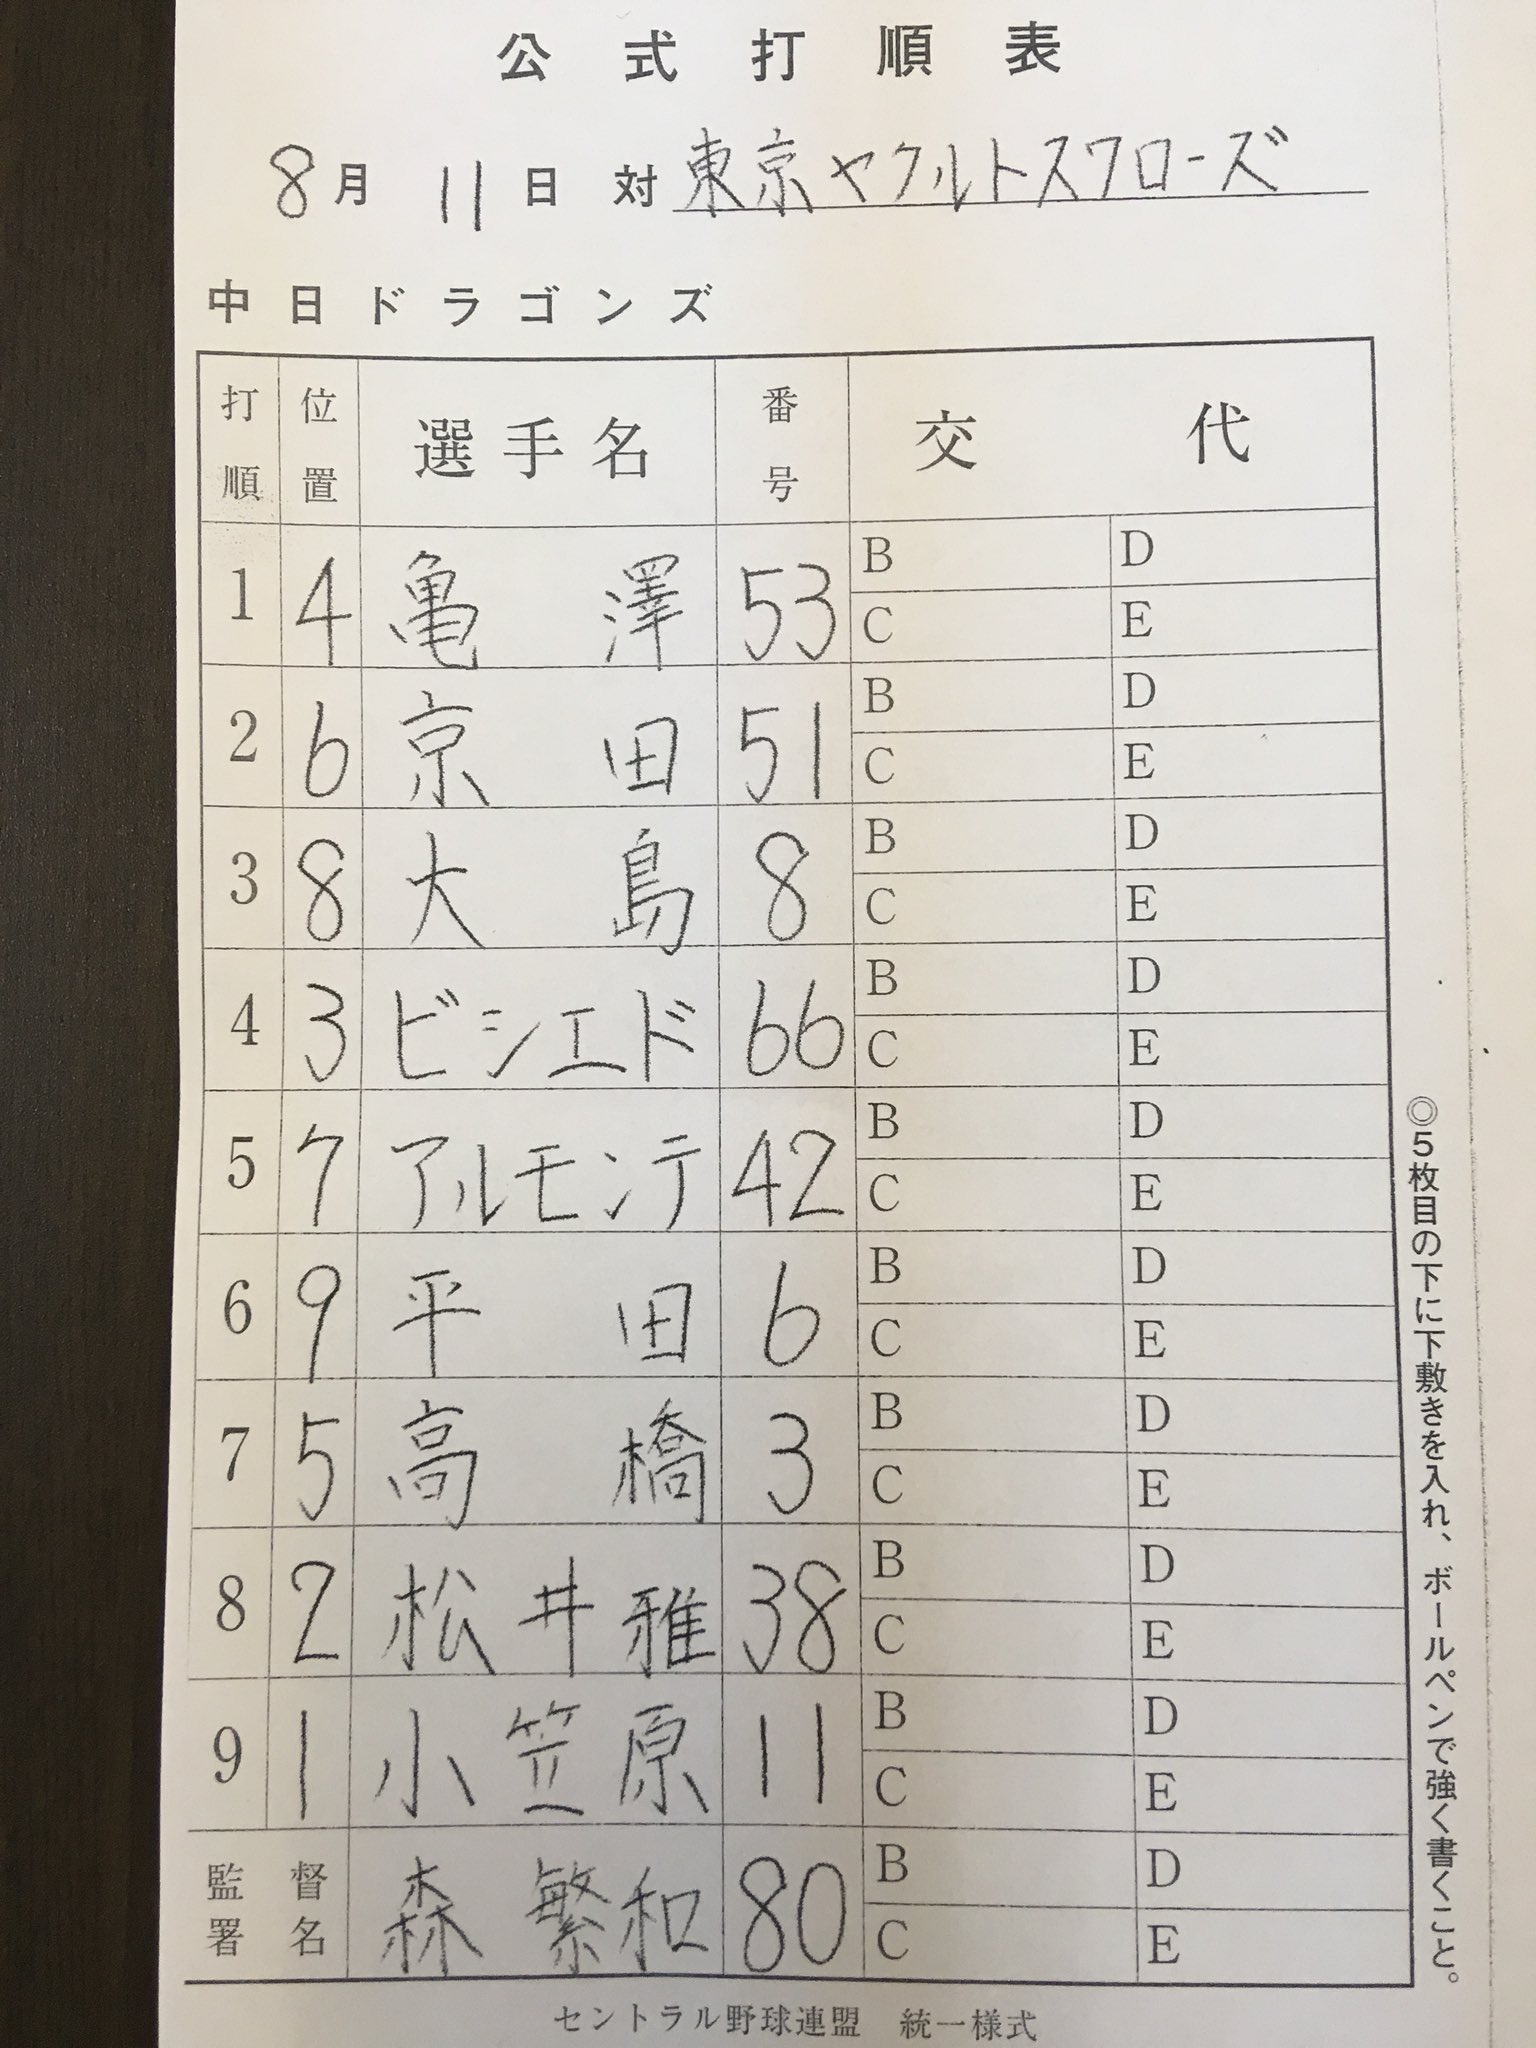 公式打順表
8月11日 対 東京ヤクルトスワローズ
中日ドラゴンズ
打順 位置 選手名 番号 交代
1 4 亀澤 53 B D
C E
2 6 京田 51 B D
C E
3 8 大島 8 B D
C E
4 3 ビシエド 66 B D
C E
5 7 アルモンテ 42 B D
C E
6 9 平田 6 B D
C E
7 5 高橋 3 B D
C E
8 2 松井雅 38 B D
C E
9 1 小笠原 11 B D
C E
監督署名 森繁和 80 B D
C E
セントラル野球連盟 統一様式
◎5枚目の下に下敷きを入れ、ボールペンで強く書くこと。